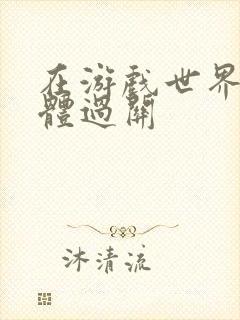 在游戲世界
體過關
沐清流